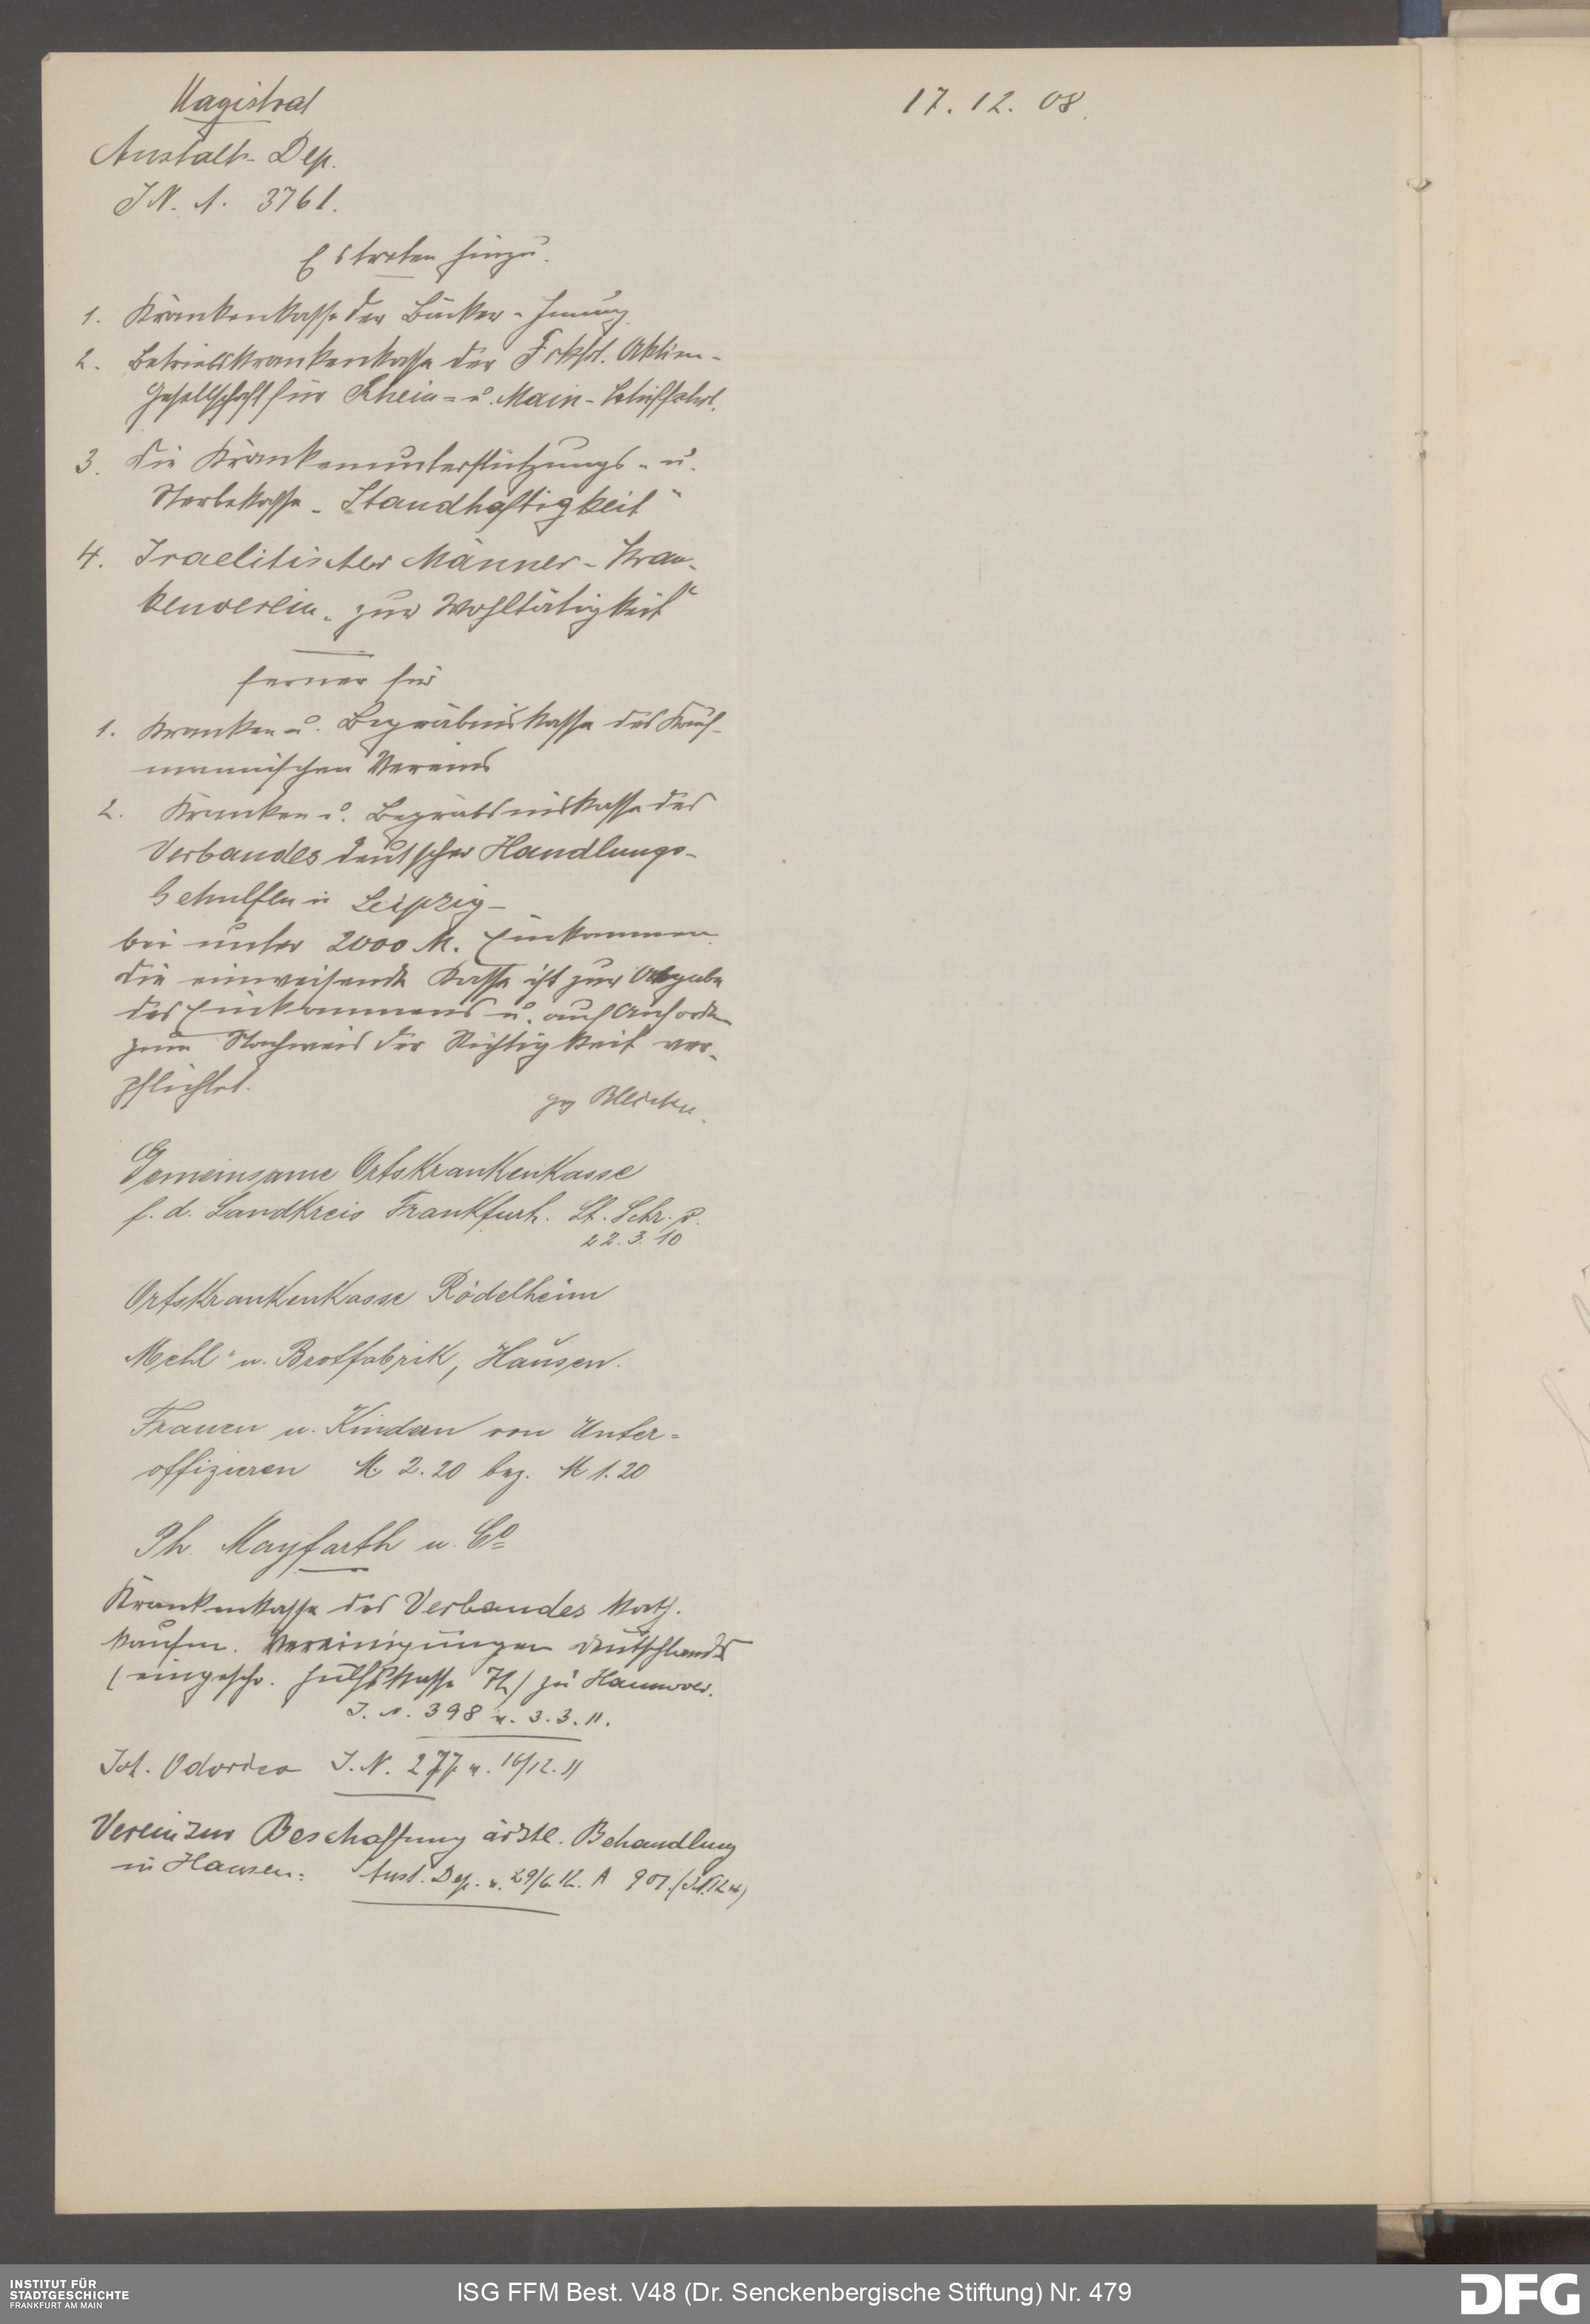 Magistrat
17. 12. 08.
Anstalts-Dep.
J N. A. 3761.
Es treten hinzu.
1. Krankenkasse der Bäcker-Innung
2. Betriebskrankenkasse der Frkfrt. Aktien-
Gesellschaft für Rhein- u. Main-Schiffahrt.
3. die Krankenunterstützungs- u.
Sterbekasse „Standhaftigkeit“
4. Israelitischer Männer-Kran-
kenverein „zur Wohltätigkeit“
ferner für
1. Kranken u. Begräbniskasse des Kauf-
männischen Vereins
2. Kranken u. Begräbniskasse des
Verbandes deutscher Handlungs-
Gehülfen in Leipzig-
bei unter 2000 M. Einkommen
die einweisende Kasse ist zur Angabe
des Einkommens u. auf Anfordern
zum Nachweis der Richtigkeit ver-
pflichtet.
gez Bleicken.
Gemeinsame Ortskrankenkasse
f. d. Landkreis Frankfurt. Lt. Schr. v.
22.3.10
Ortskrankenkasse Rödelheim
Mehl- u. Brotfabrik, Hausen.
Frauen u. Kindern von Unter-
offizieren M. 2.20 bez. M 1.20
Ph. Mayfarth u. Co
Krankenkasse des Verbandes kath.
kaufm. Vereinigungen Deutschlands
(eingeschr. Hülfskasse 72) zu Hannover.
J. N. 398 v. 3.3.11.
Joh. Odorico J. N. 277 v. 16/12. 11
Verein zur Beschaffung ärztl. Behandlung
in Hausen: Anst. Dep. v. 29/6.12. A 901.
INSTITUT FÜR
STADTGESCHICHTE
FRANKFURT AM MAIN
ISG FFM Best. V48 (Dr. Senckenbergische Stiftung) Nr. 479
DFG